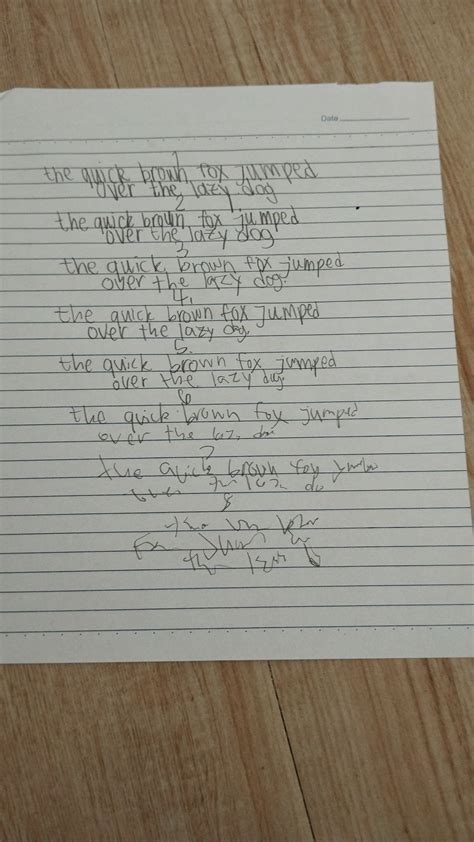 Date
1
the quick brown fox jumped
over the lazy dog
2
the quick brown fox jumped
over the lazy dog
3
the quick brown fox jumped
over the lazy dog.
4.
the quick brown fox jumped
over the lazy dog.
5.
the quick brown fox jumped
over the lazy dog.
6
the quick brown fox jumped
over the
7
the quick brown fox
8